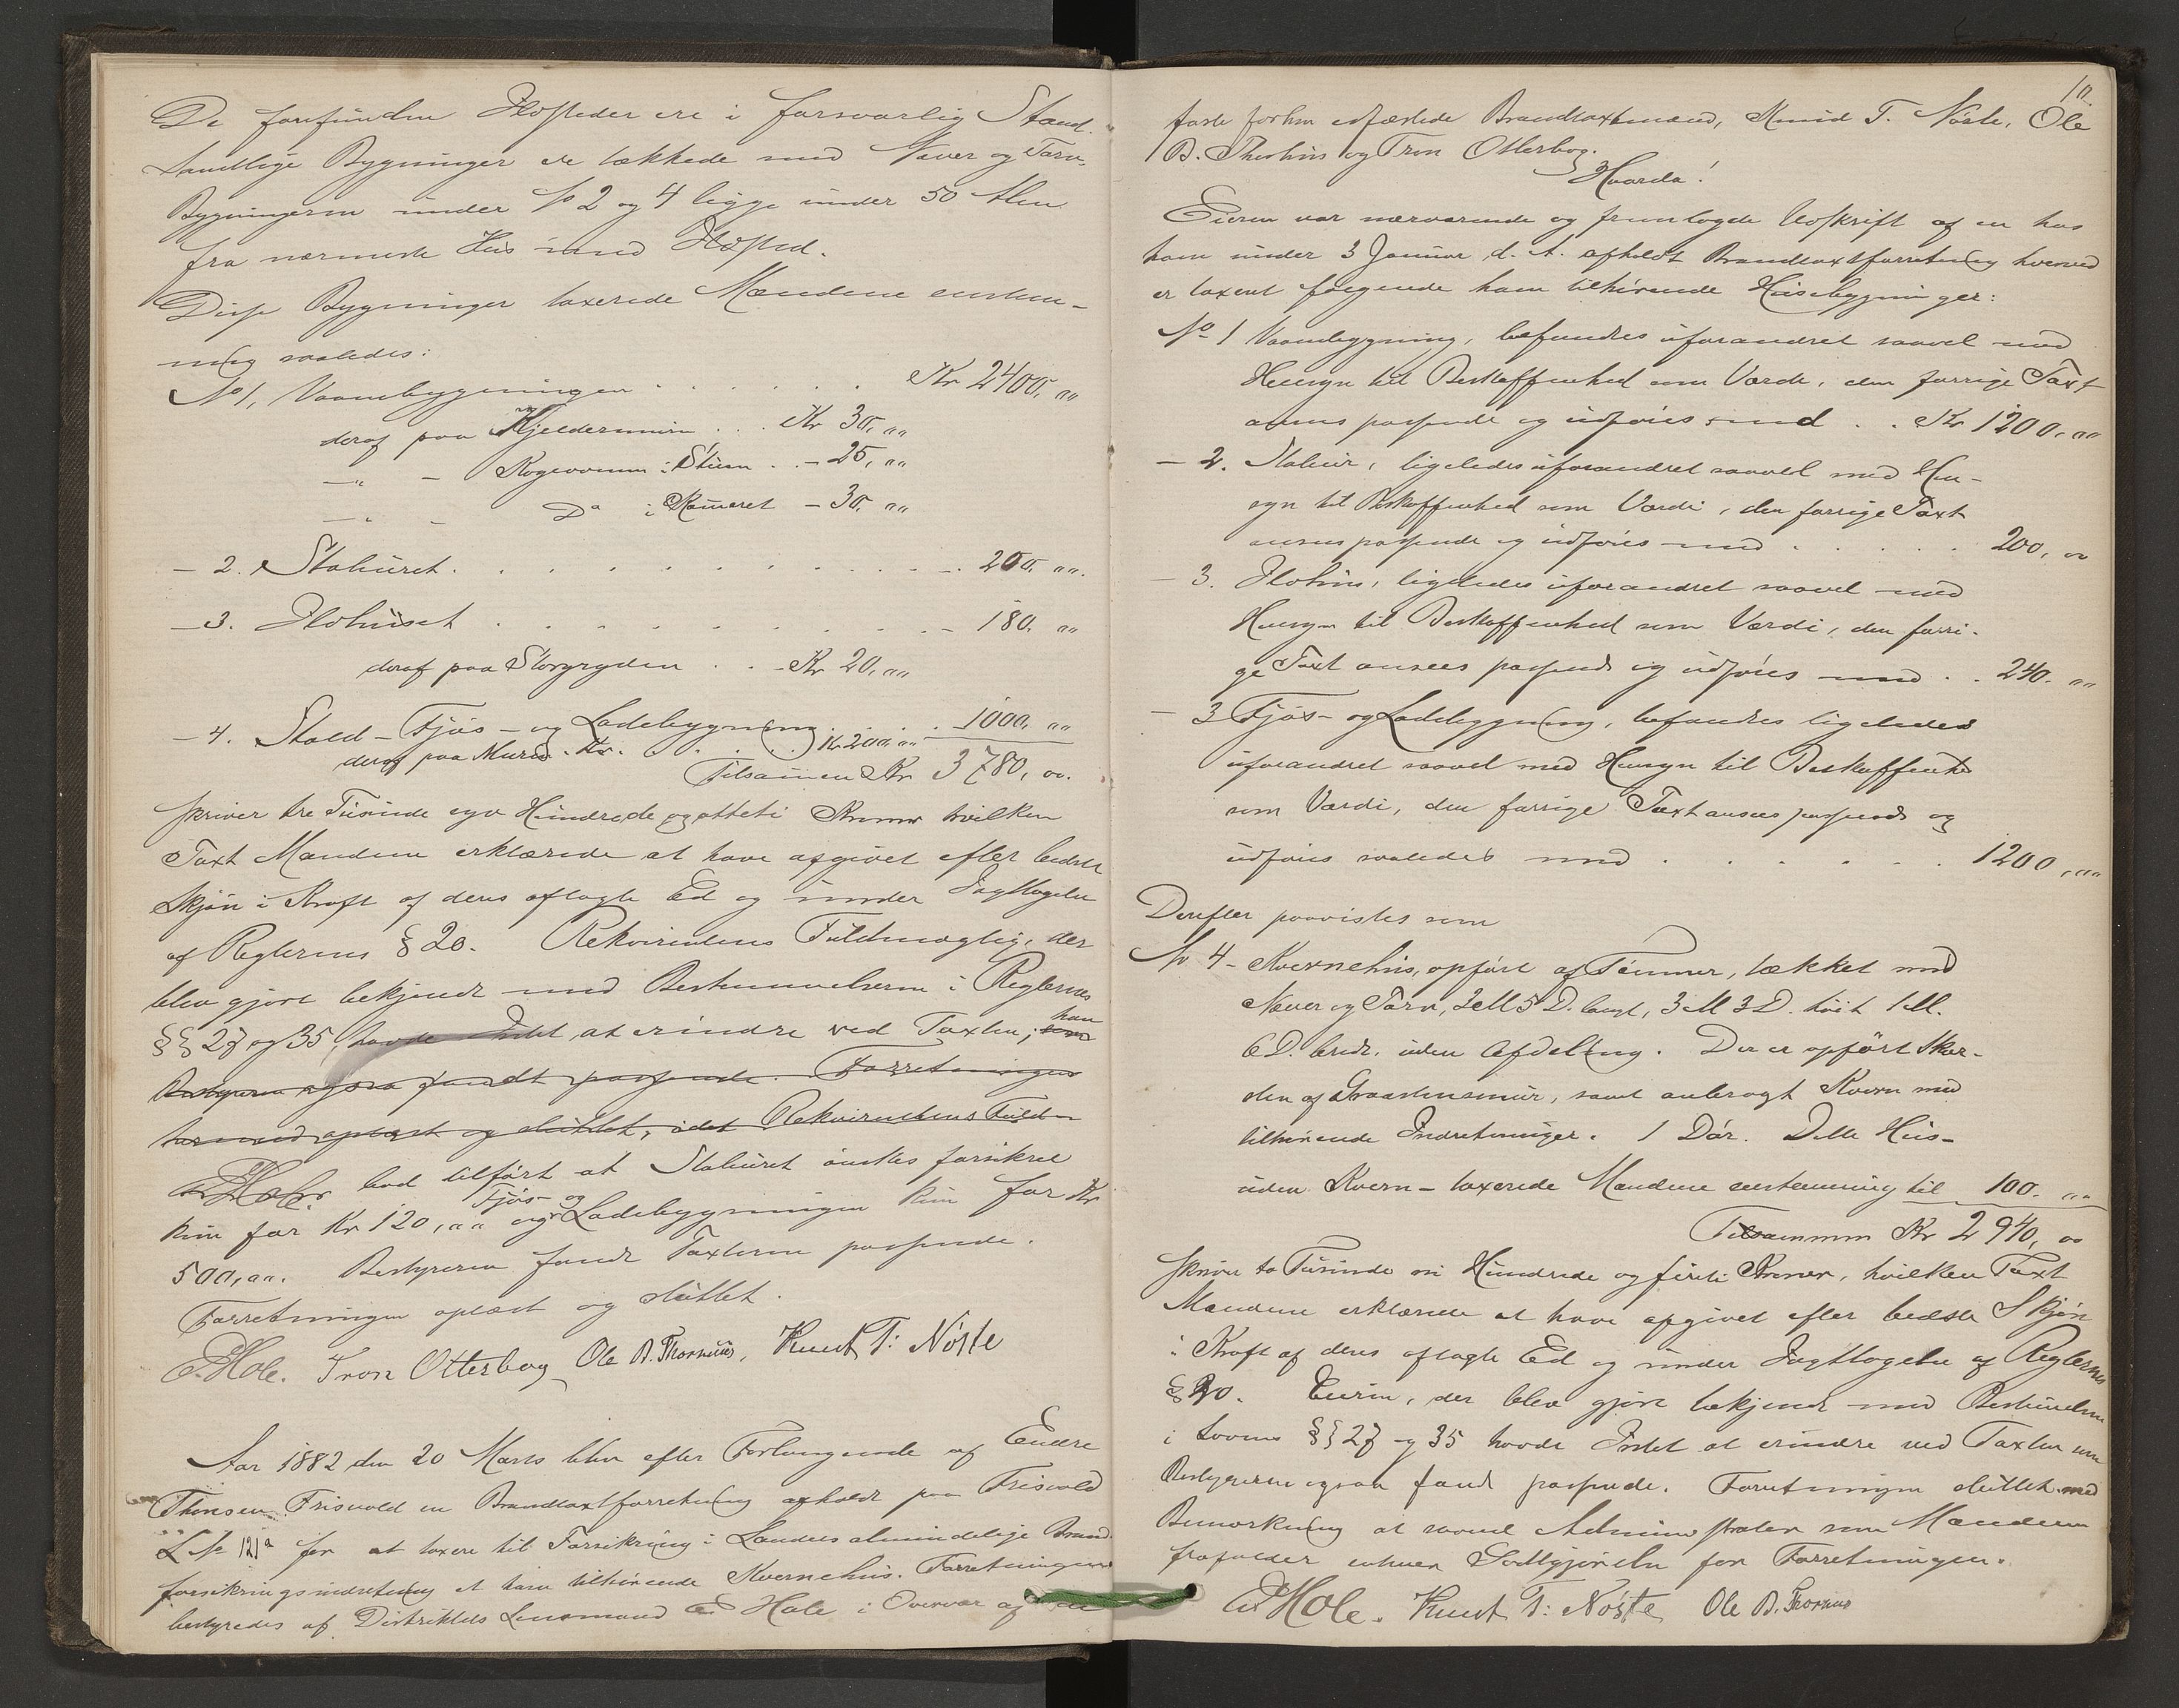 De forefundne Ildsteder ere i forsvarlig Stand.
Samtlige Bygninger ere tækkede med Næver og Torv.
Bygningerne under No 2 og 4 ligge under 50 Alen
fra nærmeste Hus med Ildsted.
Disse Bygninger taxerede Mændene enstem-
mig saaledes:
No 1, Vaanebygningen . . . . . . Kr 2400, „„
deraf paa Kjeldermuren . . . Kr 30, „„
—„ — Kogeovnen i Stuen . . – 25, „„
—„ — Do i Kammeret – 30, „„
— 2. Stabüret . . . . . . . . . . – 200, „„.
— 3. Ildhüset . . . . . . . . . – 180, „„
deraf paa Storgryden . . – Kr 20, „„
— 4. Stald- Fjøs- og Ladebygning . . . 1000, „„
deraf paa Muren . Kr. . . . . Kr 200, „„
Tilsammen Kr 3780, oo.
skriver tre Tusinde syv Hundrede og otteti Kroner hvilken
Taxt Mændene erklærede at have afgivet efter bedste
Skjøn i Kraft af deres aflagte Ed og under Iagttagelse
af Reglernes § 20. Rekvirentens Fuldmægtig, der
blev gjort bekjendt med Bestemmelserne i Reglernes
§§ 27 og 35, havde Intet at erindre ved Taxten, som han
Bestyreren ogsaa fandt passende. Forretningen
hermed oplæst og sluttet, idet Rekvirentens Fuldm
E Hole. bad tilført at Stabüret ønskes forsikret
kun for Kr 120, „„ og Fjøs- og Ladebygningen kun for Kr
500, „„. Bestyreren fandt Taxterne passende.
Forretningen oplæst og sluttet.
E. Hole. Tron Otterbog Ole B. Thorhuus, Knut T: Nöste
Aar 1882 den 20 Marts blev efter Forlangende af Endre
Thorsen Frisvold en Brandtaxtforretning afholdt paa Frisvold
L No 121a for at taxere til Forsikring i Landets almindelige Brand-
forsikringsindretning et ham tilhørende Kvernehus. Forretningen
bestyredes af Distriktets Lensmand E Hole i Overvær af de
10.
faste forhen edfæstede Brandtaxtmænd, Knud T. Nöste, Ole
B. Thorhus og Tron Otterbog.
Hvorda!
Eieren var nærværende og fremlagde Udskrift af en hos
ham under 3 Januar d. A. afholdt Brandtaxtforretning hvorved
er taxeret følgende ham tilhörende Husebygninger:
No 1 Vaanebygning, befandtes uforandret saavel med
Hensyn til Beskaffenhed som Værdi, den forrige Taxt
ansees passende og udføres med . . Kr 1200, „„
— 2. Stabur, ligeledes uforandret saavel med Hen-
syn til Beskaffenhed som Værdi, den forrige Taxt
ansees passende og udføres med . . . . . 200, oo
— 3. Ildhus, ligeledes uforandret saavel med
Hensyn til Beskaffenhed som Værdi, den forri-
ge Taxt ansees passende og udføres med . . 240. „„
— 3 Fjøs- og Ladebygning, befandtes ligeledes
uforandret saavel med Hensyn til Beskaffenhed
som Værdi, den forrige Taxt ansees passende og
udføres saaledes med . . . . . . 1200, „„
Derefter paavistes som
No 4 - Kvernehus, opført af Tømmer, tækket med
Næver og Torv, 2 M 5 D. langt, 3 M 3 D. høit 1 M.
6 D. bredt, uden Afdeling. Der er opført Skor-
sten af Graastensmur, samt anbragt Kvern med
tilhørende Indretninger. 1 Dør. Dette Hus-
uden Kvern- taxerede Mændene enstemmig til 100. „„
Tilsammen Kr 2940, oo
skriver to Tusinde ni Hundrede og firti Kroner, hvilken Taxt
Mændene erklærede at have afgivet efter bedste Skjøn
i Kraft af deres aflagte Ed og under Iagttagelse af Reglernes
§ 20. Eieren, der blev gjort bekjendt med Bestemmelserne
i Lovens §§ 27 og 35 havde Intet at erindre ved Taxten som
Bestyreren ogsaa fandt passende. Forretningen sluttet med
Bemærkning at saavel Administrator som Mændene
frafalder enhver Godtgjørelse for Forretningen.
E Hole. Knut T: Nöste Ole B. Thorhuus